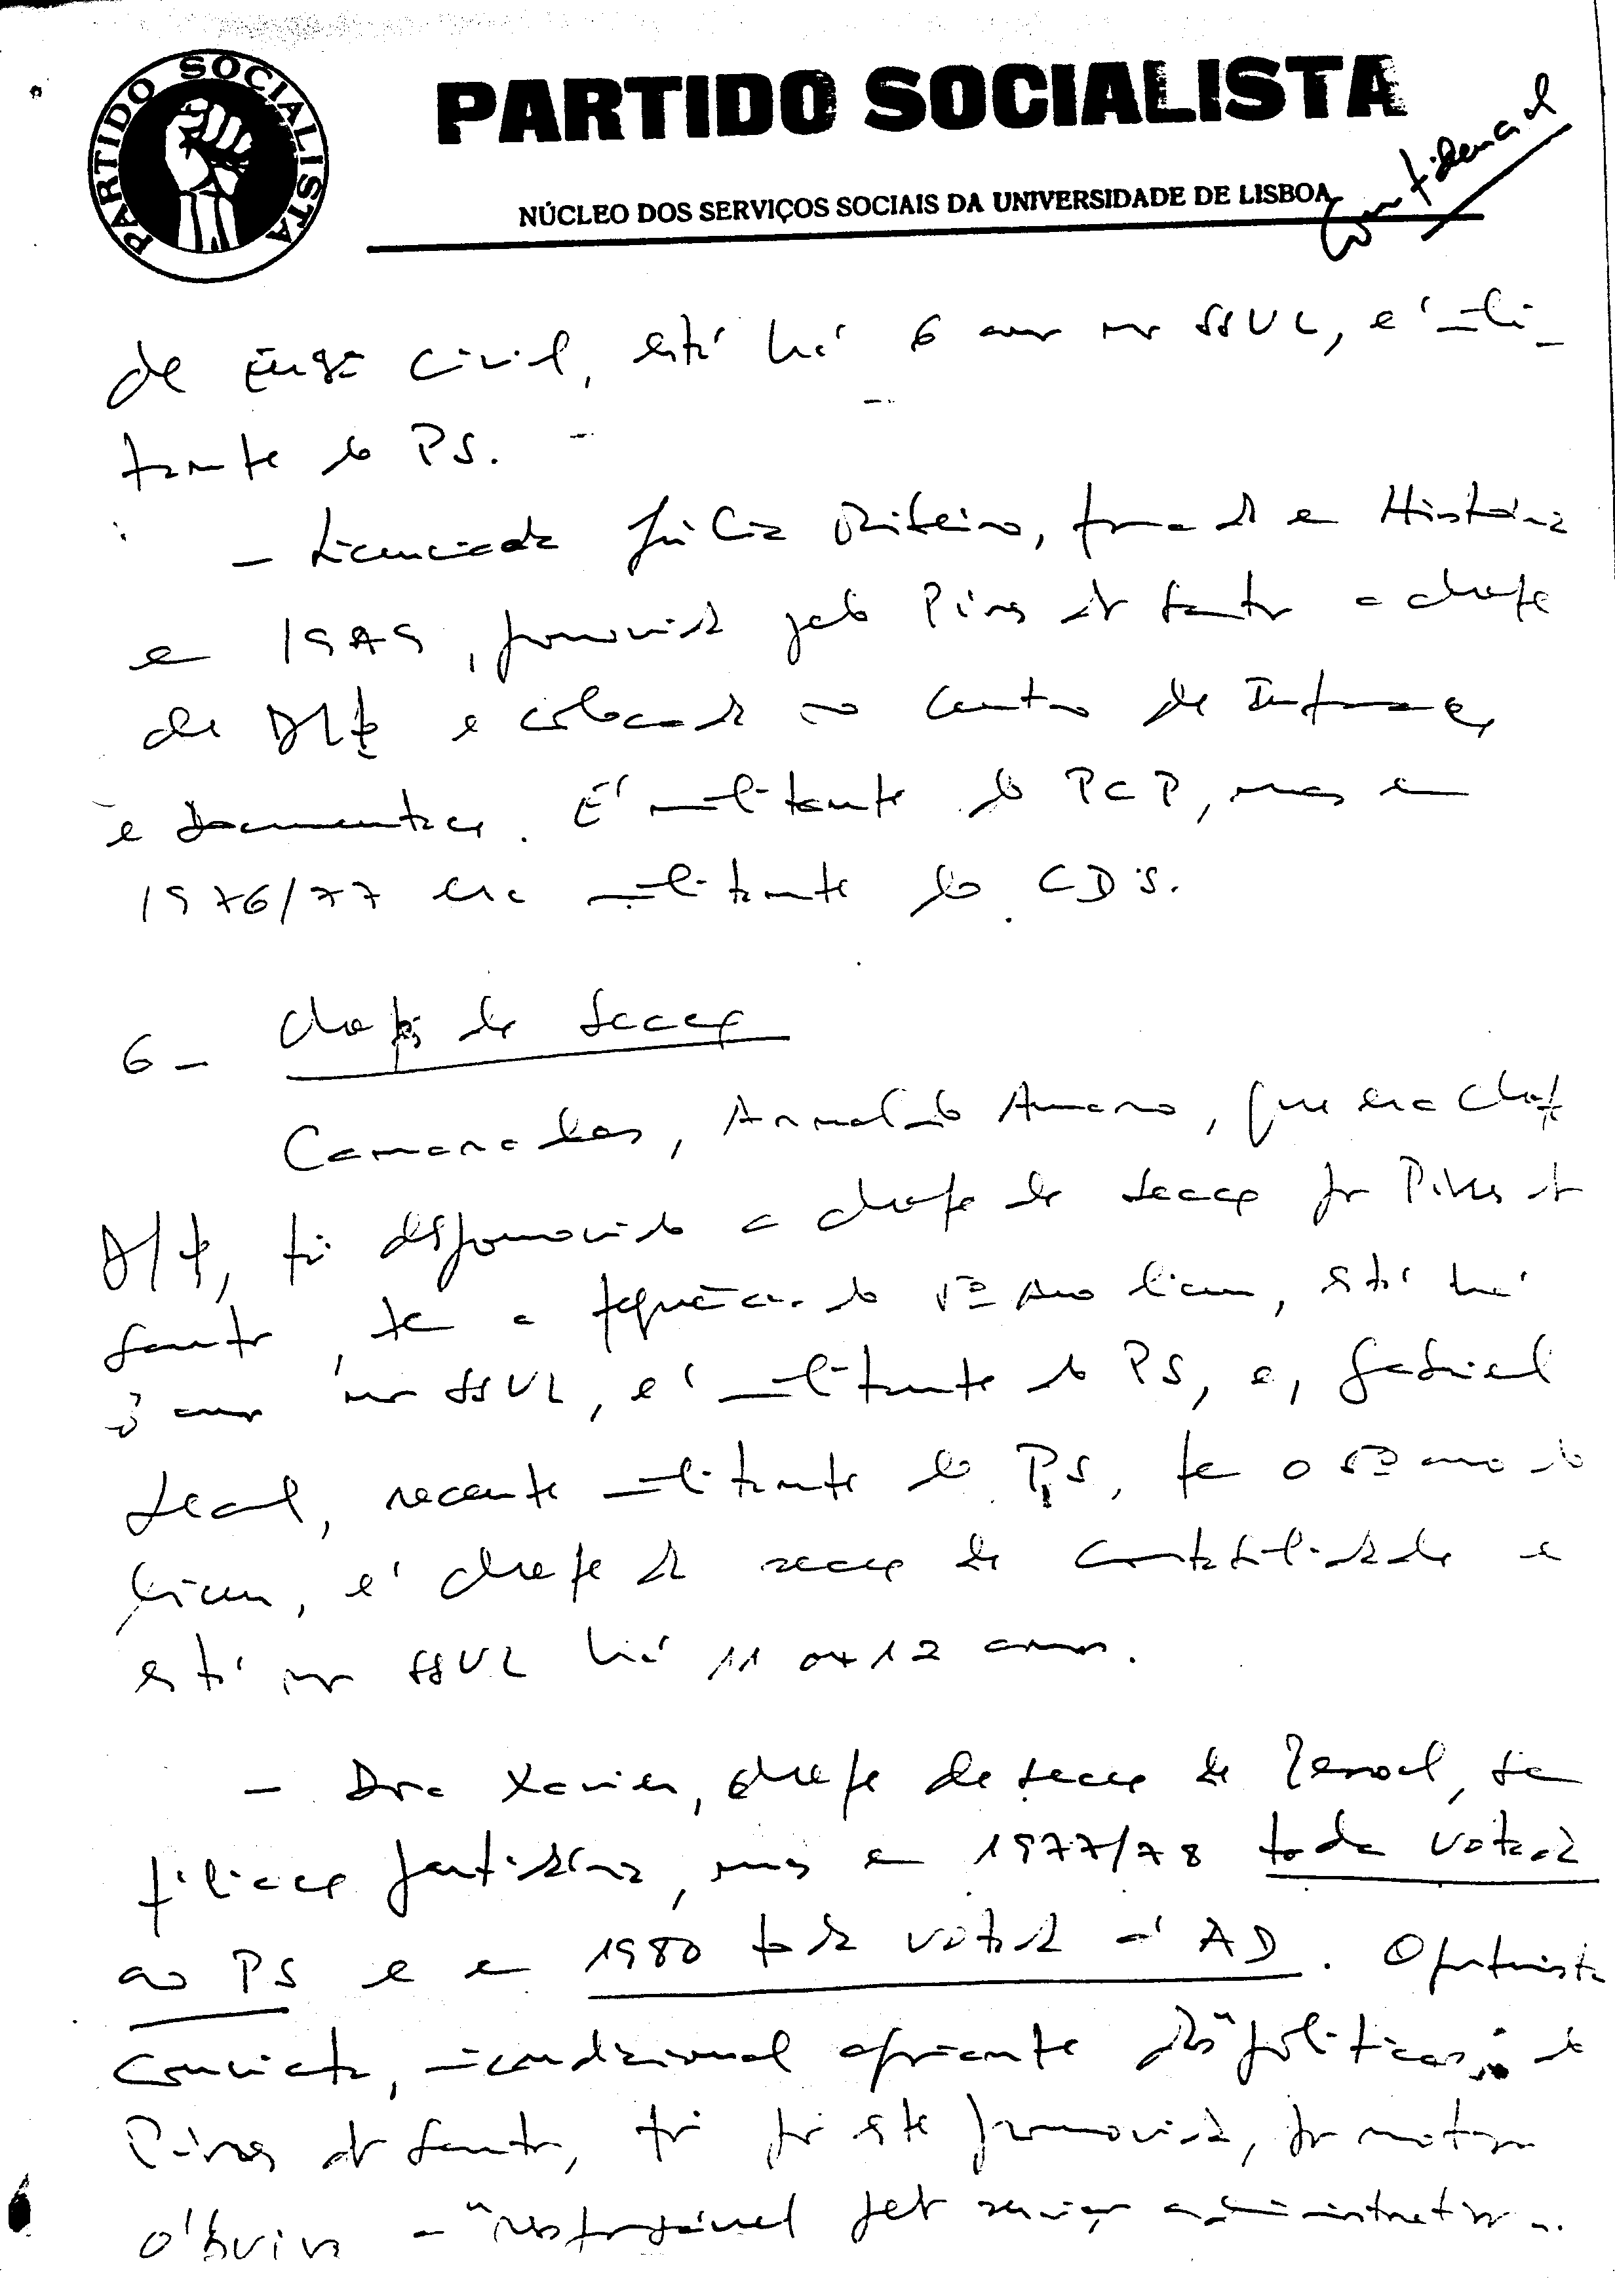 PARTIDO SOCIALISTA
PARTIDO SOCIALISTA
NÚCLEO DOS SERVIÇOS SOCIAIS DA UNIVERSIDADE DE LISBOA
Confidencial
de Engª Civil, está há 6 anos nos SSUL, é mili-
tante do PS.
- Licenciada Júlia Ribeiro, formada em História
em 1979, promovida pelo Pires dos Santos a chefe
de D/ e colocada no Centro de Informação
e Documentação. É militante do PCP, mas em
1976/77 era militante do CDS.
6 - Chefes de Secção
Camaradas, Arnaldo Amaro, que era chefe
D/, foi despromovido a chefe de secção por Pires dos
Santos, tem a frequência do 5º ano liceu, está há
anos nos SSUL, é militante do PS, e, Gabriel
Leal, recente militante do PS, tem o 5º ano do
liceu, é chefe da secção de Contabilidade e
está nos SSUL há 11 ou 12 anos.
- Dra Xavier, chefe de secção de Pessoal, sem
filiação partidária, mas em 1977/78 toda votada
ao PS e em 1980 toda votada à AD. Oportunista
convicta, incondicional apoiante das "políticas" do
Pires dos Santos, foi por este promovida, por motivos
óbvios - "responsável pelos serviços administrativos".